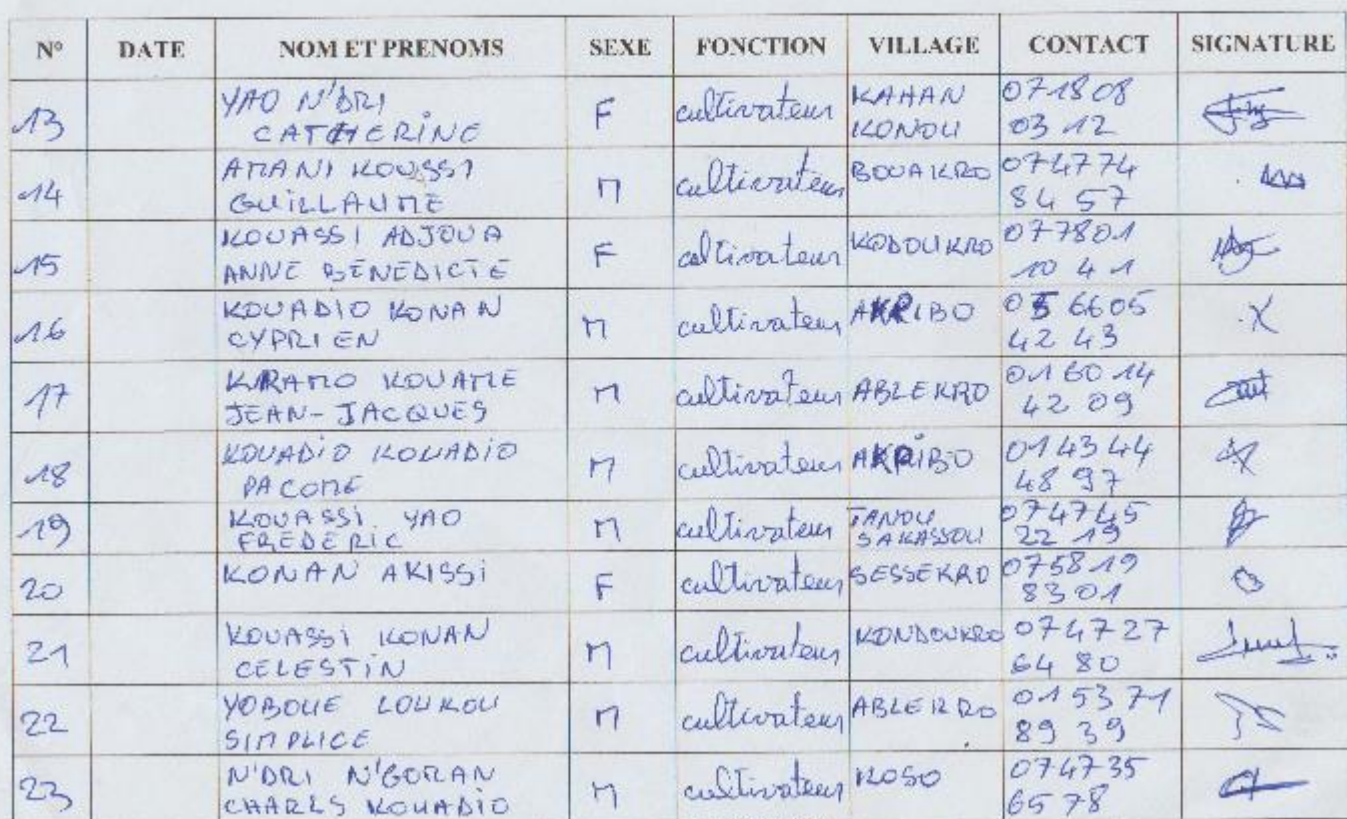 N° DATE NOM ET PRENOMS SEXE FONCTION VILLAGE CONTACT SIGNATURE
13 YAO N'DRI CATHERINE F cultivateur KAHAN KONOU 071808 03 12
14 AMANI KOUSSI GUILLAUME M cultivateur BOUAKRO 074774 84 57
15 KOUASSI ADJOUA ANNE BENEDICTE F cultivateur KODOUKRO 077801 10 41
16 KOUADIO KONAN CYPRIEN M cultivateur AKRIBO 05 6605 42 43
17 KRAMO KOUAME JEAN-JACQUES M cultivateur ABLEKRO 016014 42 09
18 KOUADIO KOUADIO PACOME M cultivateur AKRIBO 014344 48 97
19 KOUASSI YAO FREDERIC M cultivateur TANOU SAKASSOU 074745 22 19
20 KONAN AKISSI F cultivateur SESSEKRO 075819 8301
21 KOUASSI KONAN CELESTIN M cultivateur KONDOUKRO 074727 64 80
22 YOBOUE LOUKOU SIMPLICE M cultivateur ABLEKRO 015371 89 39
23 N'DRI N'GORAN CHARLS KOUADIO M cultivateur KOSO 074735 65 78